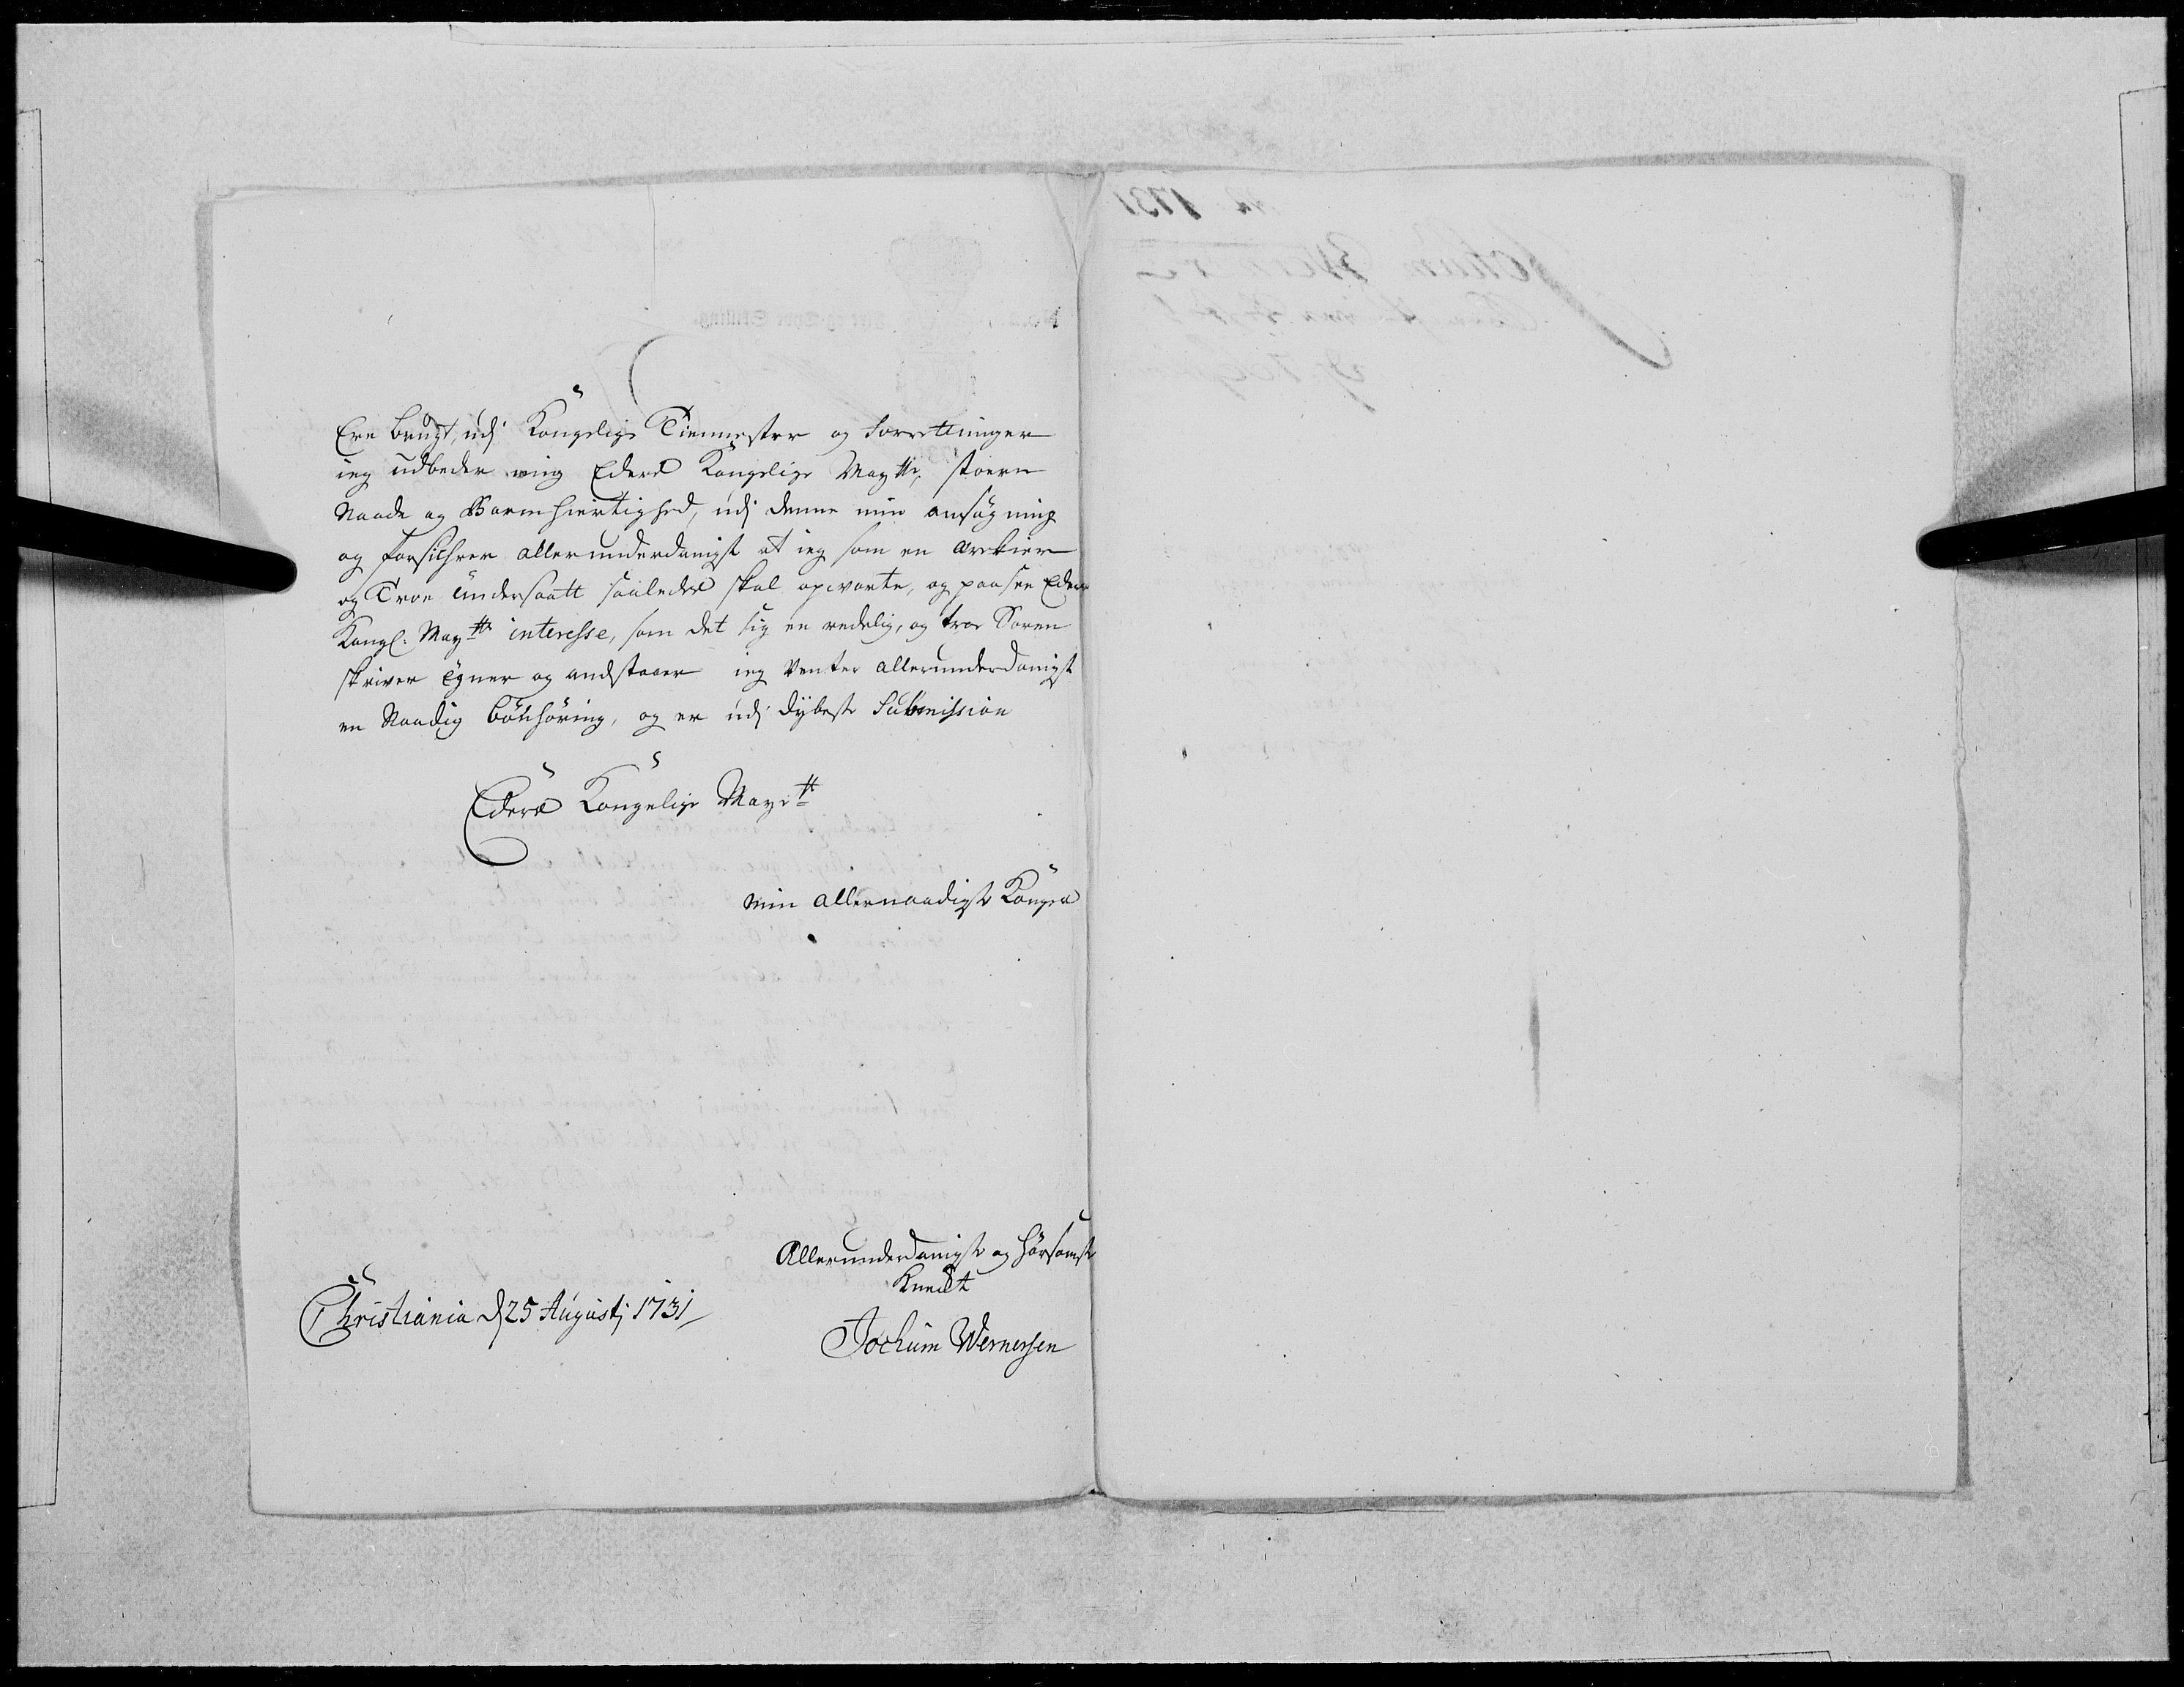 Ere brugt, udj Kongelige Tiennester og Forrettninger
ieg udbeder mig Eders Kongelige Maytts, stoere
Naade og Barmhiertighed, udj denne min ansøgning
og forsichrer allerunderdanigst at ieg som en
og Troe Undersaatt saaledes skal opwarte, og paasee Eders
Kongl: Maytts interesse, som det sig en redelig, og troe Soren
skriver Egner og anstaaer ieg Venter allerunderdanigst
en Naadig bönhöring, og er udj dybeste Submission
Eders Kongelige Mayts
Min allernaadigste Konges
Allerunderdanigste og hörsomste
Knecht
Christiania d 25 Augustj 1731
Jochum Wernersen